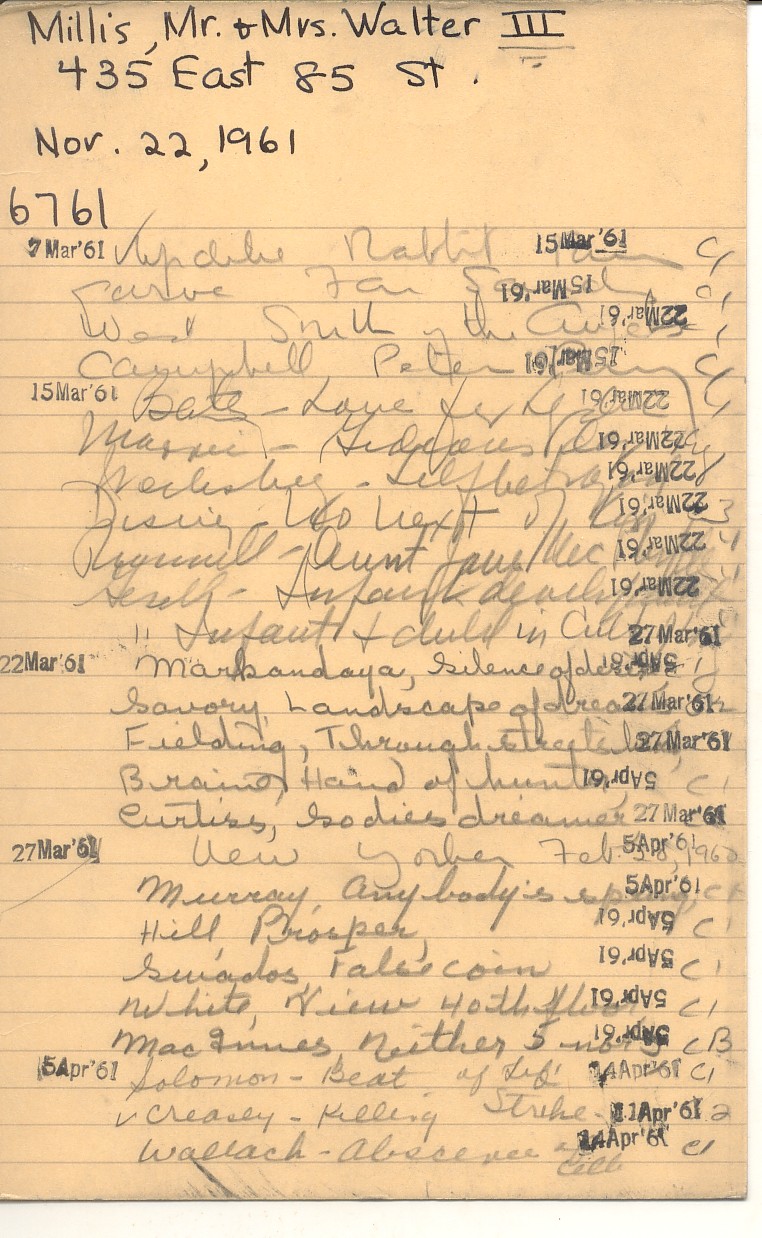 Millis, Mr. & Mrs. Walter III
435 East 85 St.
Nov. 22, 1961
6761
7 Mar '61 Updike Rabbit 15 Mar '61 C1
Far 15 Mar '61
West South of the 22 Mar '61
Campbell Peter 15 Mar '61 C1
15 Mar '61 Bates - Love for 22 Mar '61 C1
22 Mar '61
22 Mar '61
Disney - No next of kin 22 Mar '61
- Aunt Jane 22 Mar '61
Gesell - Infant development 22 Mar '61
" Infant & child in Cul 27 Mar '61
22 Mar '61 Markandaya, Silence of desire 5 Apr '61
Savory, Landscape of dreams 27 Mar '61
Fielding, Through streets 27 Mar '61
Braine, Hand of hunter 5 Apr '61 C1
Curtiss, Godies dreamer 27 Mar '61
27 Mar '61 New Yorker Feb. 1960 5 Apr '61
Murray, Anybody's spring 5 Apr '61 C1
Hill, Prosper, 5 Apr '61 C1
Swados, False coin 5 Apr '61 C1
White, View 40th floor 5 Apr '61 C1
MacInnes, Neither 5 nor 3 5 Apr '61 CB
5 Apr '61 Solomon - Beat of Life 14 Apr '61 C1
v Creasey - Killing Strike - 11 Apr '61 2
Wallach - Absence of a Cello 14 Apr '61 C1